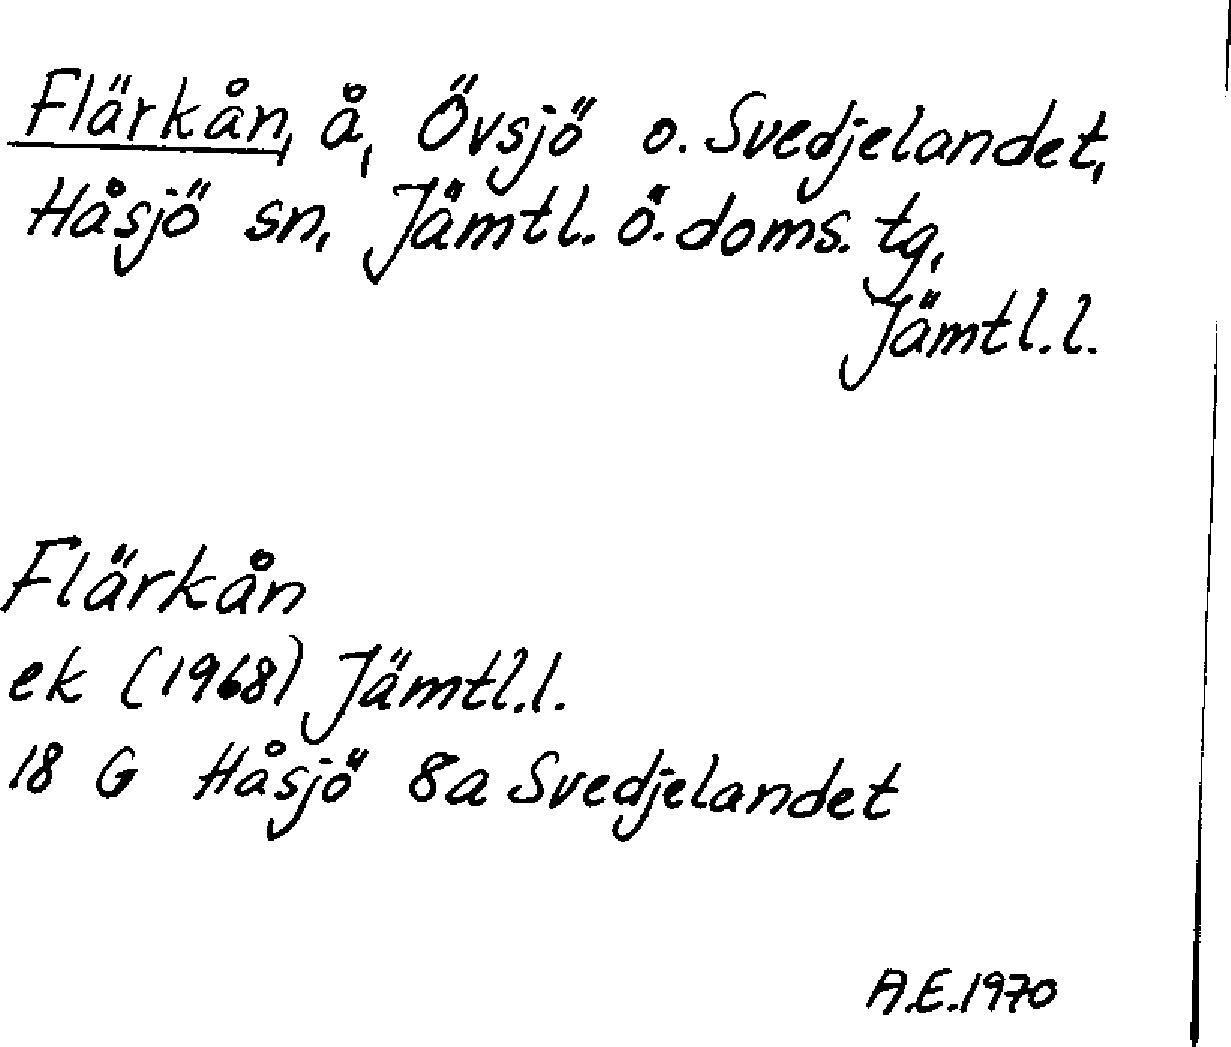 Flärkån, å, Övsjö o. Svedjelandet,
Håsjö sn, Jämtl. ö. doms. tg,
Jämtl.l.
Flärkån
ek (1968) Jämtl.l.
18 G Håsjö 8a Svedjelandet
A.E.1970